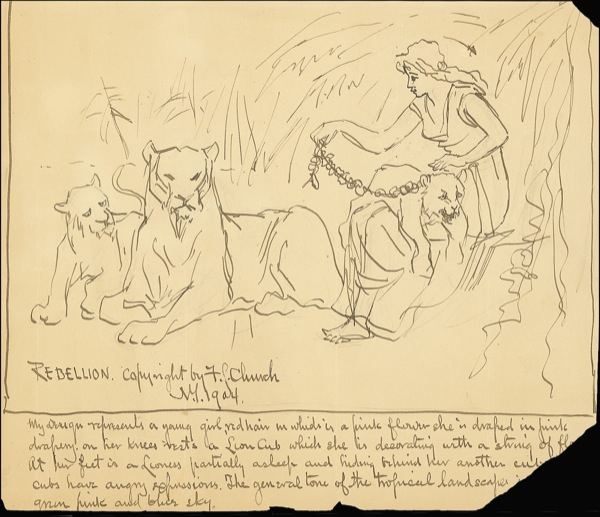 REBELLION. Copyright by F.S. Church
N.Y. 1904.
My design represents a young girl, red hair in which is a pink flower she is draped in pink
drapery. on her knees rests a Lion Cub which she is decorating with a string of
At her feet is a Lioness partially asleep and hiding behind her another
cubs have angry expressions. The general tone of the tropical landscape
green pink and blue sky.